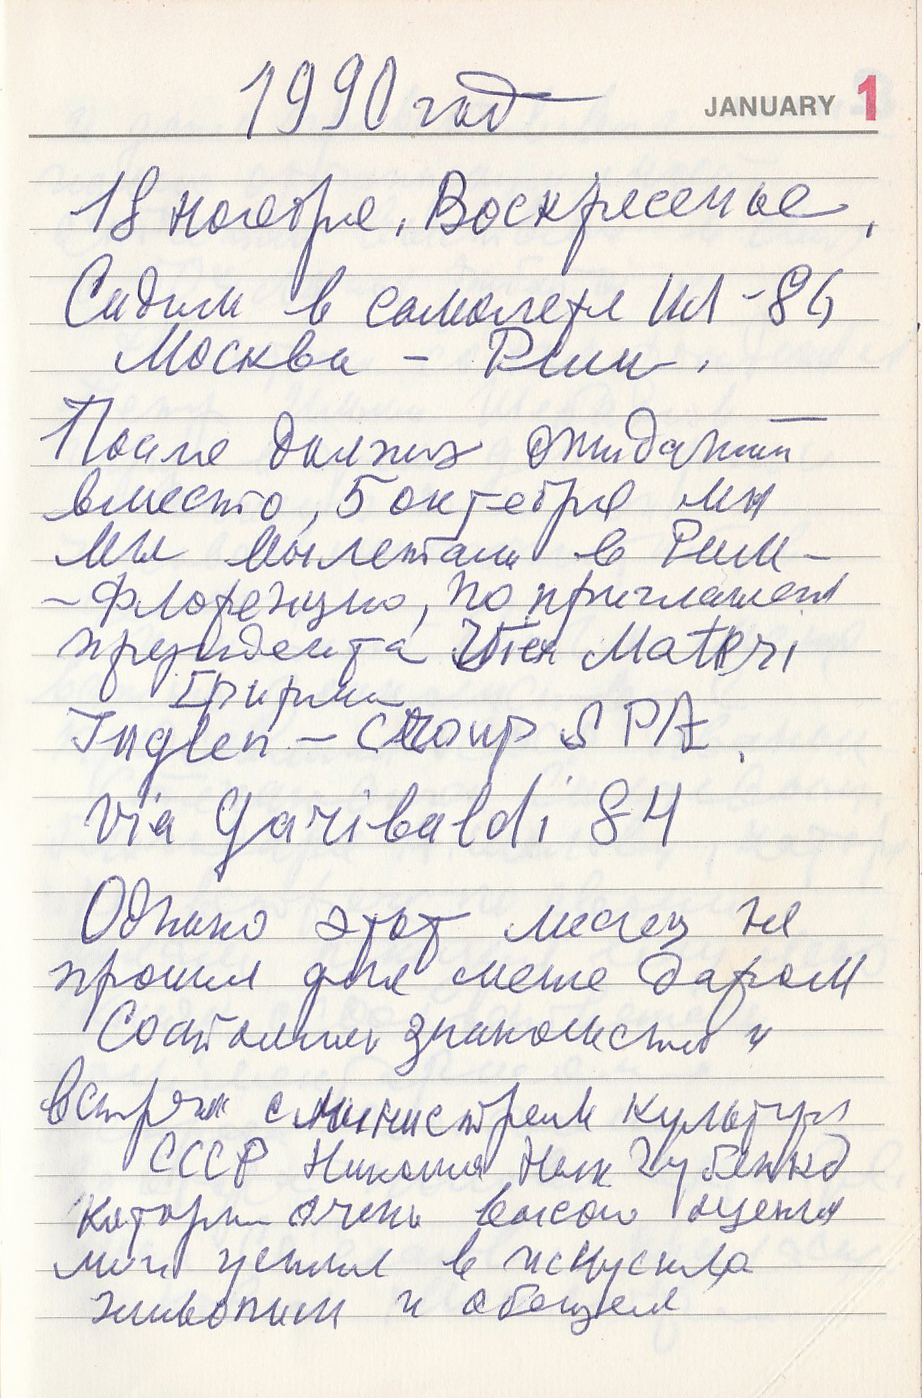 1990 год
JANUARY 1
18 ноября, Воскресенье,
Сидим в самолете ИЛ-86,
Москва - Рим.
После долгих ожиданий
вместо, 5 октября мы
мы вылетаем в Рим-
-Флоренцию, по приглашен
президента Materi
Фирмы
Inglen - Group S PA.
Via Garibaldi 84
Однако этот месяц не
прошел для меня даром
Состоялись знакомство и
встреча с министром культуры
СССР Николай Ник Губенко
которы очень высоко оценил
мои успехи в искусства
живописи и обещал